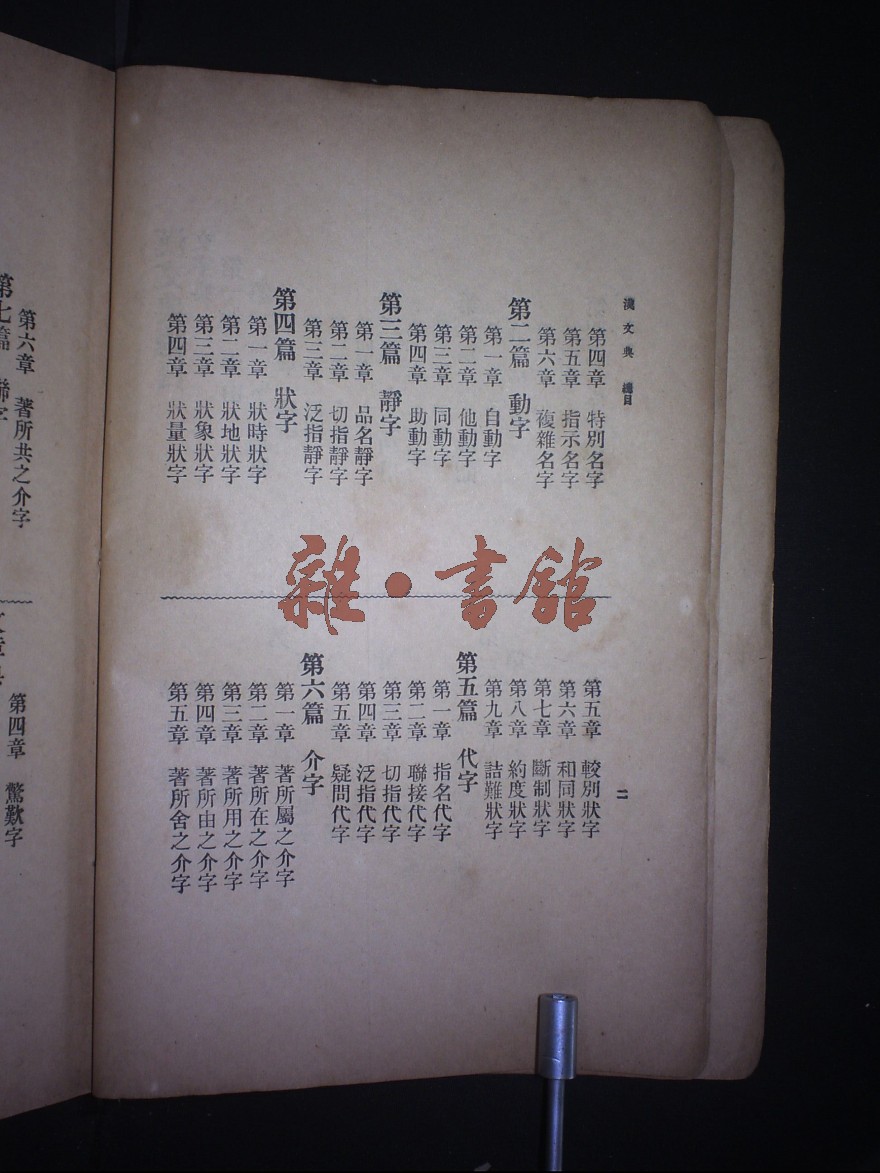 漢文典 總目
二
第四章 特別名字
第五章 指示名字
第六章 複雜名字
第二篇 動字
第一章 自動字
第二章 他動字
第三章 同動字
第四章 助動字
第三篇 靜字
第一章 品名靜字
第二章 切指靜字
第三章 泛指靜字
第四篇 狀字
第一章 狀時狀字
第二章 狀地狀字
第三章 狀象狀字
第四章 狀量狀字
第五章 較別狀字
第六章 和同狀字
第七章 斷制狀字
第八章 約度狀字
第九章 詰難狀字
第五篇 代字
第一章 指名代字
第二章 聯接代字
第三章 切指代字
第四章 泛指代字
第五章 疑問代字
第六篇 介字
第一章 著所屬之介字
第二章 著所在之介字
第三章 著所用之介字
第四章 著所由之介字
第五章 著所舍之介字
第六章 著所共之介字
第七篇 聯字
第四章 驚歎字
雜·書館